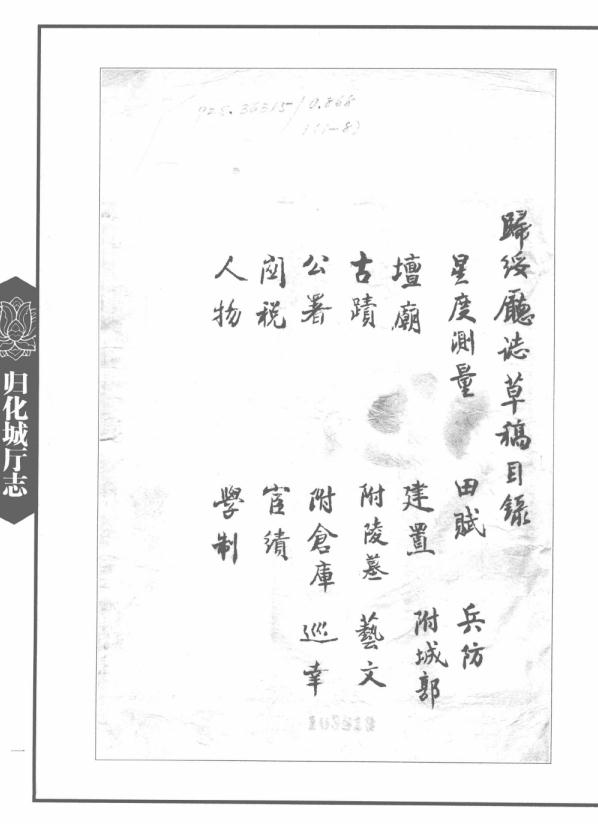 歸綏廳誌草稿目錄
星度測量 田賦 兵防
壇廟 建置 附城郭
古蹟 附陵墓 藝文
公署 附倉庫 巡幸
関税 宦績
人物 學制
归化城厅志
一